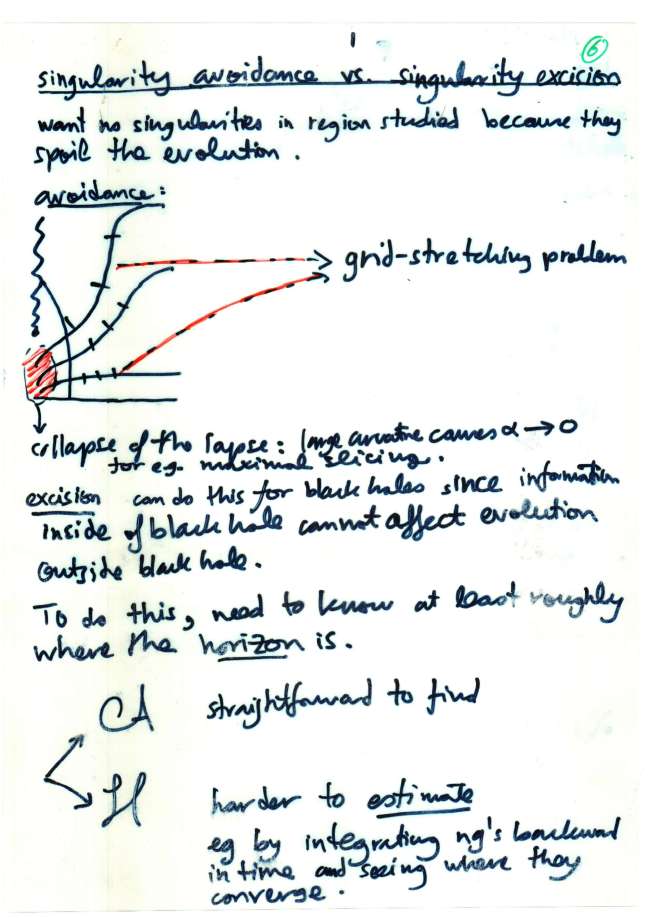 6
singularity avoidance vs. singularity excision
want no singularities in region studied because they
spoil the evolution.
avoidance:
grid-stretching problem
collapse of the lapse: large curvature causes α → 0
for eg. maximal slicing.
excision can do this for black holes since information
inside of black hole cannot affect evolution
outside black hole.
To do this, need to know at least roughly
where the horizon is.
straightforward to find
H
harder to estimate
eg by integrating ng's backward
in time and seeing where they
converge.